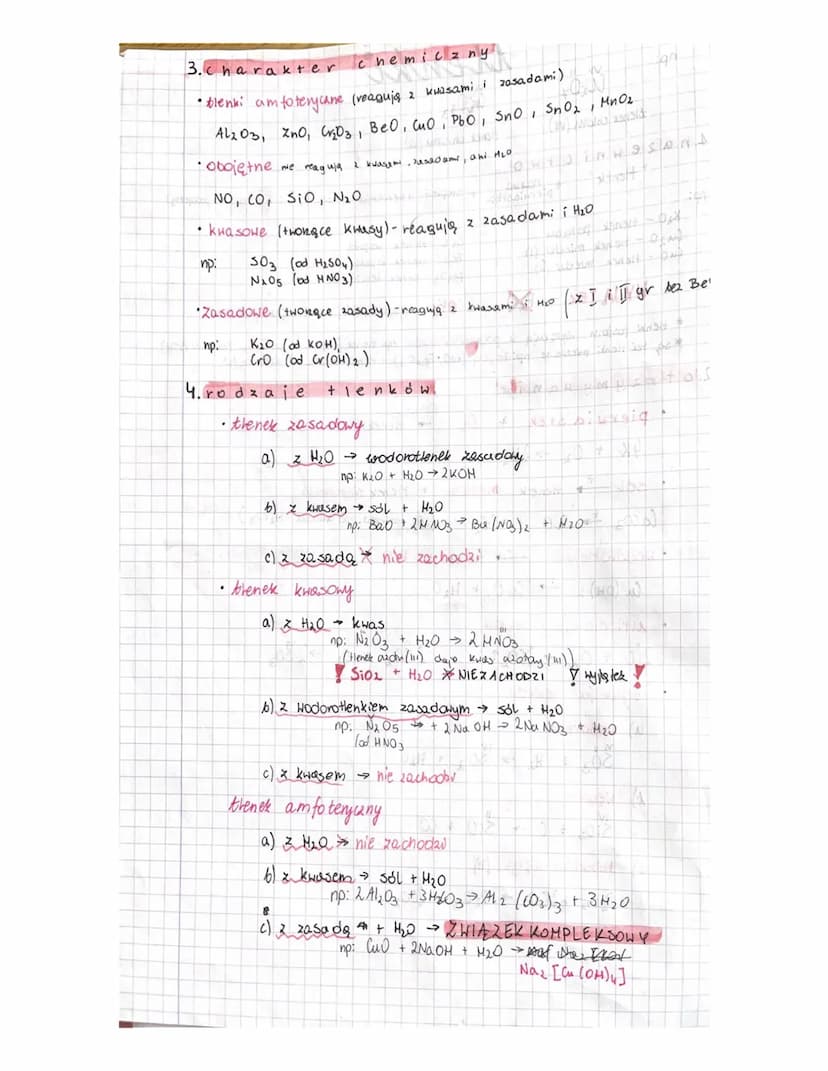 3. charakter chemiczny
• tlenki amfoteryczne (reagują z kwasami i zasadami)
Al2O3, ZnO, Cr2O3, BeO, CuO, PbO, SnO, SnO2, MnO2
• obojętne nie reagują z kwasami, zasadami, ani H2O
NO, CO, SiO, N2O
• kwasowe (tworzące kwasy) - reagują z zasadami i H2O
np: SO3 (od H2SO4)
N2O5 (od HNO3)
• zasadowe (tworzące zasady) - reagują z kwasami i H2O (z I i II gr bez Be
np: K2O (od KOH),
CrO (od Cr(OH)2)
4. rodzaje tlenków
• tlenek zasadowy
a) z H2O → wodorotlenek zasadowy
np: K2O + H2O → 2KOH
b) z kwasem → sól + H2O
np: BaO + 2HNO3 → Ba(NO3)2 + H2O
c) z zasadą nie zachodzi
• tlenek kwasowy
a) z H2O → kwas
np: N2O3 + H2O → 2HNO3
(tlenek azotu(III) daje kwas azotowy (III))
! SiO2 + H2O NIE ZACHODZI ! wyjątek !
b) z wodorotlenkiem zasadowym → sól + H2O
np. N2O5 + 2NaOH → 2NaNO3 + H2O
(od HNO3
c) z kwasem → nie zachodzi
tlenek amfoteryczny
a) z H2O → nie zachodzi
b) z kwasem → sól + H2O
np: 2Al2O3 + 3H2CO3 → Al2(CO3)3 + 3H2O
c) z zasadą + H2O → ZWIĄZEK KOMPLEKSOWY
np: CuO + 2NaOH + H2O →
Na2[Cu(OH)4]